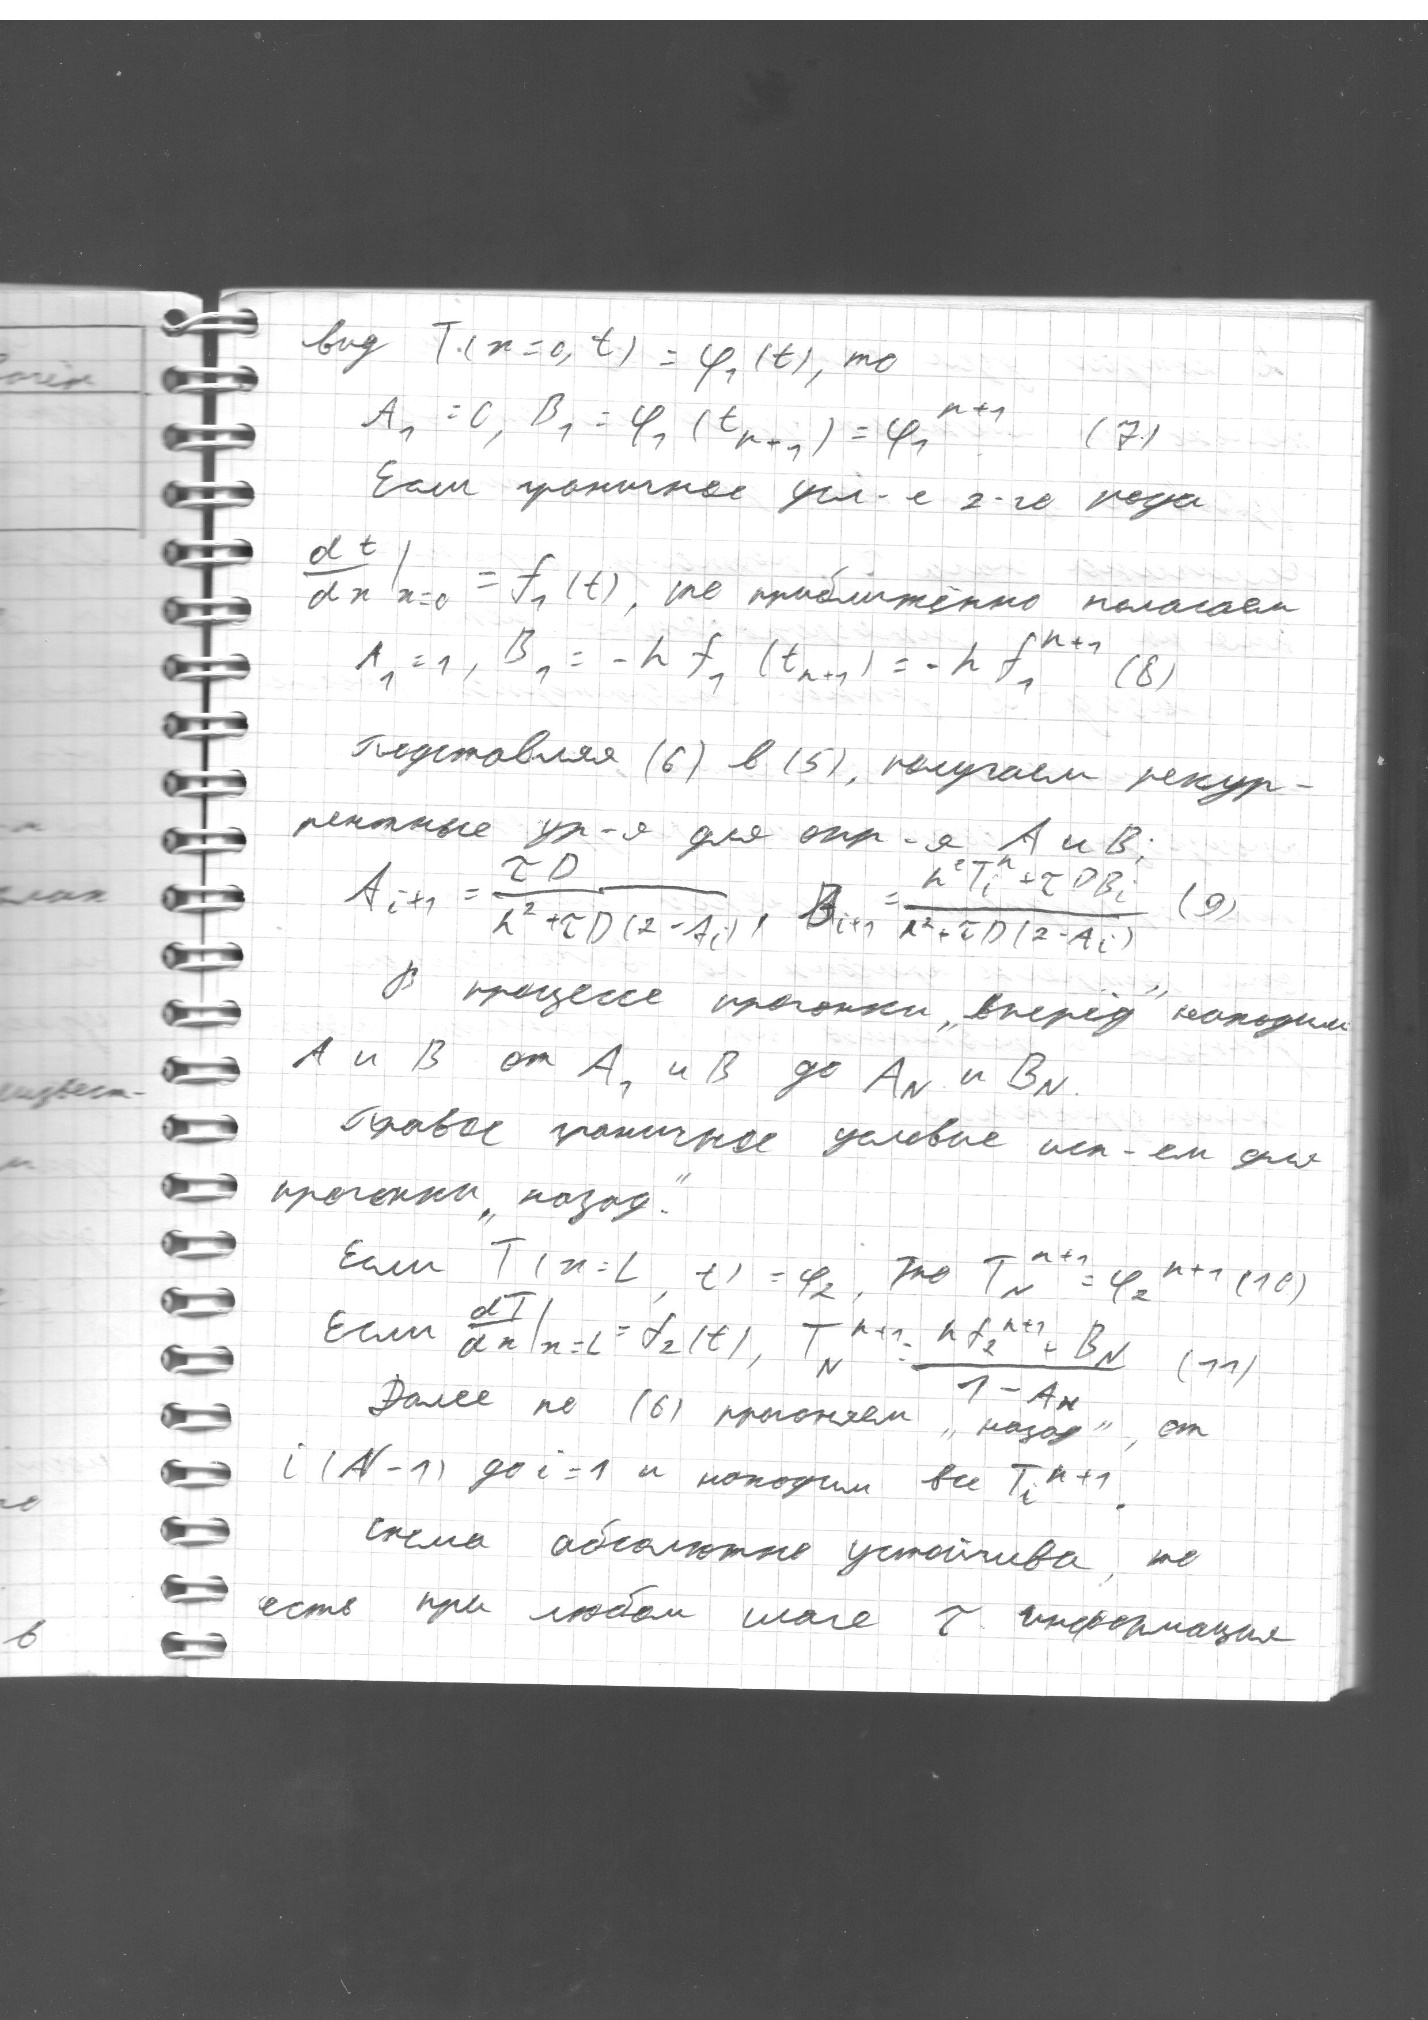 вид T(x=0, t) = φ₁(t), то
A₁ = 0, B₁ = φ₁(tₙ₊₁) = φ₁ⁿ⁺¹ (7)
Если граничное усл-е 2-го рода
dt/dx|ₓ₌₀ = f₁(t), то приближённо полагаем
A₁ = 1, B₁ = -h f₁(tₙ₊₁) = -h f₁ⁿ⁺¹ (8)
Подставляя (6) в (5), получаем рекур-
рентные ур-я для опр-я A и B:
Aᵢ₊₁ = τD / (h² + τD(2-Aᵢ)), Bᵢ₊₁ = (h²Tᵢⁿ + τDBᵢ) / (h² + τD(2-Aᵢ)) (9)
В процессе прогонки „вперёд" находим
A и B от A₁ и B до A_N и B_N.
Правое граничное условие исп-ем для
прогонки „назад".
Если T(x=L, t) = φ₂, то T_Nⁿ⁺¹ = φ₂ⁿ⁺¹ (10)
Если dT/dx|ₓ₌L = f₂(t), T_Nⁿ⁺¹ = (h f₂ⁿ⁺¹ + B_N) / (1 - A_N) (11)
Далее по (6) прогоняем „назад", от
i (N-1) до i=1 и находим все Tᵢⁿ⁺¹.
Схема абсолютно устойчива, то
есть при любом шаге τ информация